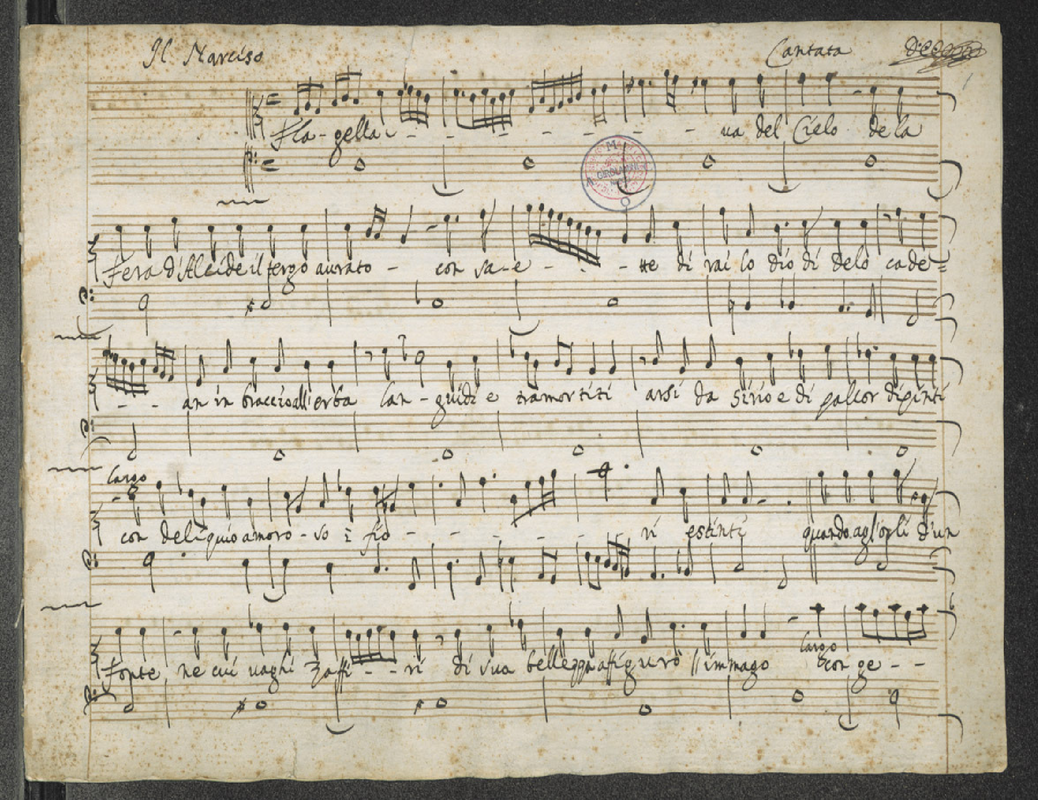 Il Narciso Cantata
Fla - gella - - - - - - - - - ua del Cielo de la
fera d'Alcide il tergo aurato - con sa - e - - - tte di rai lo dio di delo cade =
- - an in braccio all'erba lan - guidi e tramortiti arsi da sirio e di pallor dipinti
Largo
con deliquio amoro - so i fio - - - - - - - ri estinti quando
fonte, ne cui uaghi zaffi - - ri di sua bellezza
Largo
con ge - -